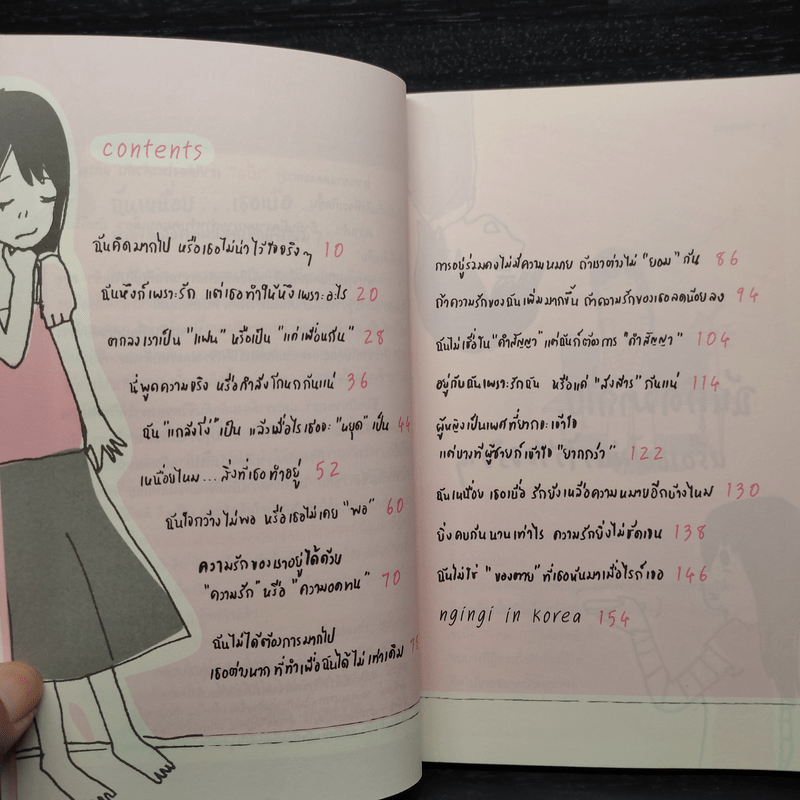 contents
ฉันคิดมากไป หรือเธอไม่น่าไว้ใจจริงๆ 10
ฉันหึงก็เพราะรัก แต่เธอทำให้หึงเพราะอะไร 20
ตกลงเราเป็น "แฟน" หรือเป็น "แค่เพื่อนกัน" 28
นี่พูดความจริง หรือกำลังโกหกกันแน่ 36
ฉัน "แกล้งโง่" เป็น แล้วเมื่อไรเธอจะ "หยุด" เป็น 44
เหนื่อยไหม...สิ่งที่เธอทำอยู่ 52
ฉันใจกว้างไม่พอ หรือเธอไม่เคย "พอ" 60
ความรักของเราอยู่ได้ด้วย
"ความรัก" หรือ "ความอดทน" 70
ฉันไม่ได้ต้องการมากไป
เธอต่างหากที่ทำเพื่อฉันได้ไม่เท่าเดิม 78
การอยู่ร่วมคงไม่มีความหมาย ถ้าเราต่างไม่ "ยอม" กัน 86
ถ้าความรักของฉันเพิ่มมากขึ้น ถ้าความรักของเธอลดน้อยลง 94
ฉันไม่เชื่อใน "คำสัญญา" แต่ฉันก็ต้องการ "คำสัญญา" 104
อยู่กับฉันเพราะรักฉัน หรือแค่ "สงสาร" กันแน่ 114
ผู้หญิงเป็นเพศที่ยากจะเข้าใจ
แต่บางทีผู้ชายก็เข้าใจ "ยากกว่า" 122
ฉันเหนื่อย เธอเบื่อ รักยังเหลือความหมายอีกบ้างไหม 130
ยิ่งคบกันนานเท่าไร ความรักยิ่งไม่ชัดเจน 138
ฉันไม่ใช่ "ของตาย" ที่เธอหันมาเมื่อไรก็เจอ 146
ngingi in korea 154